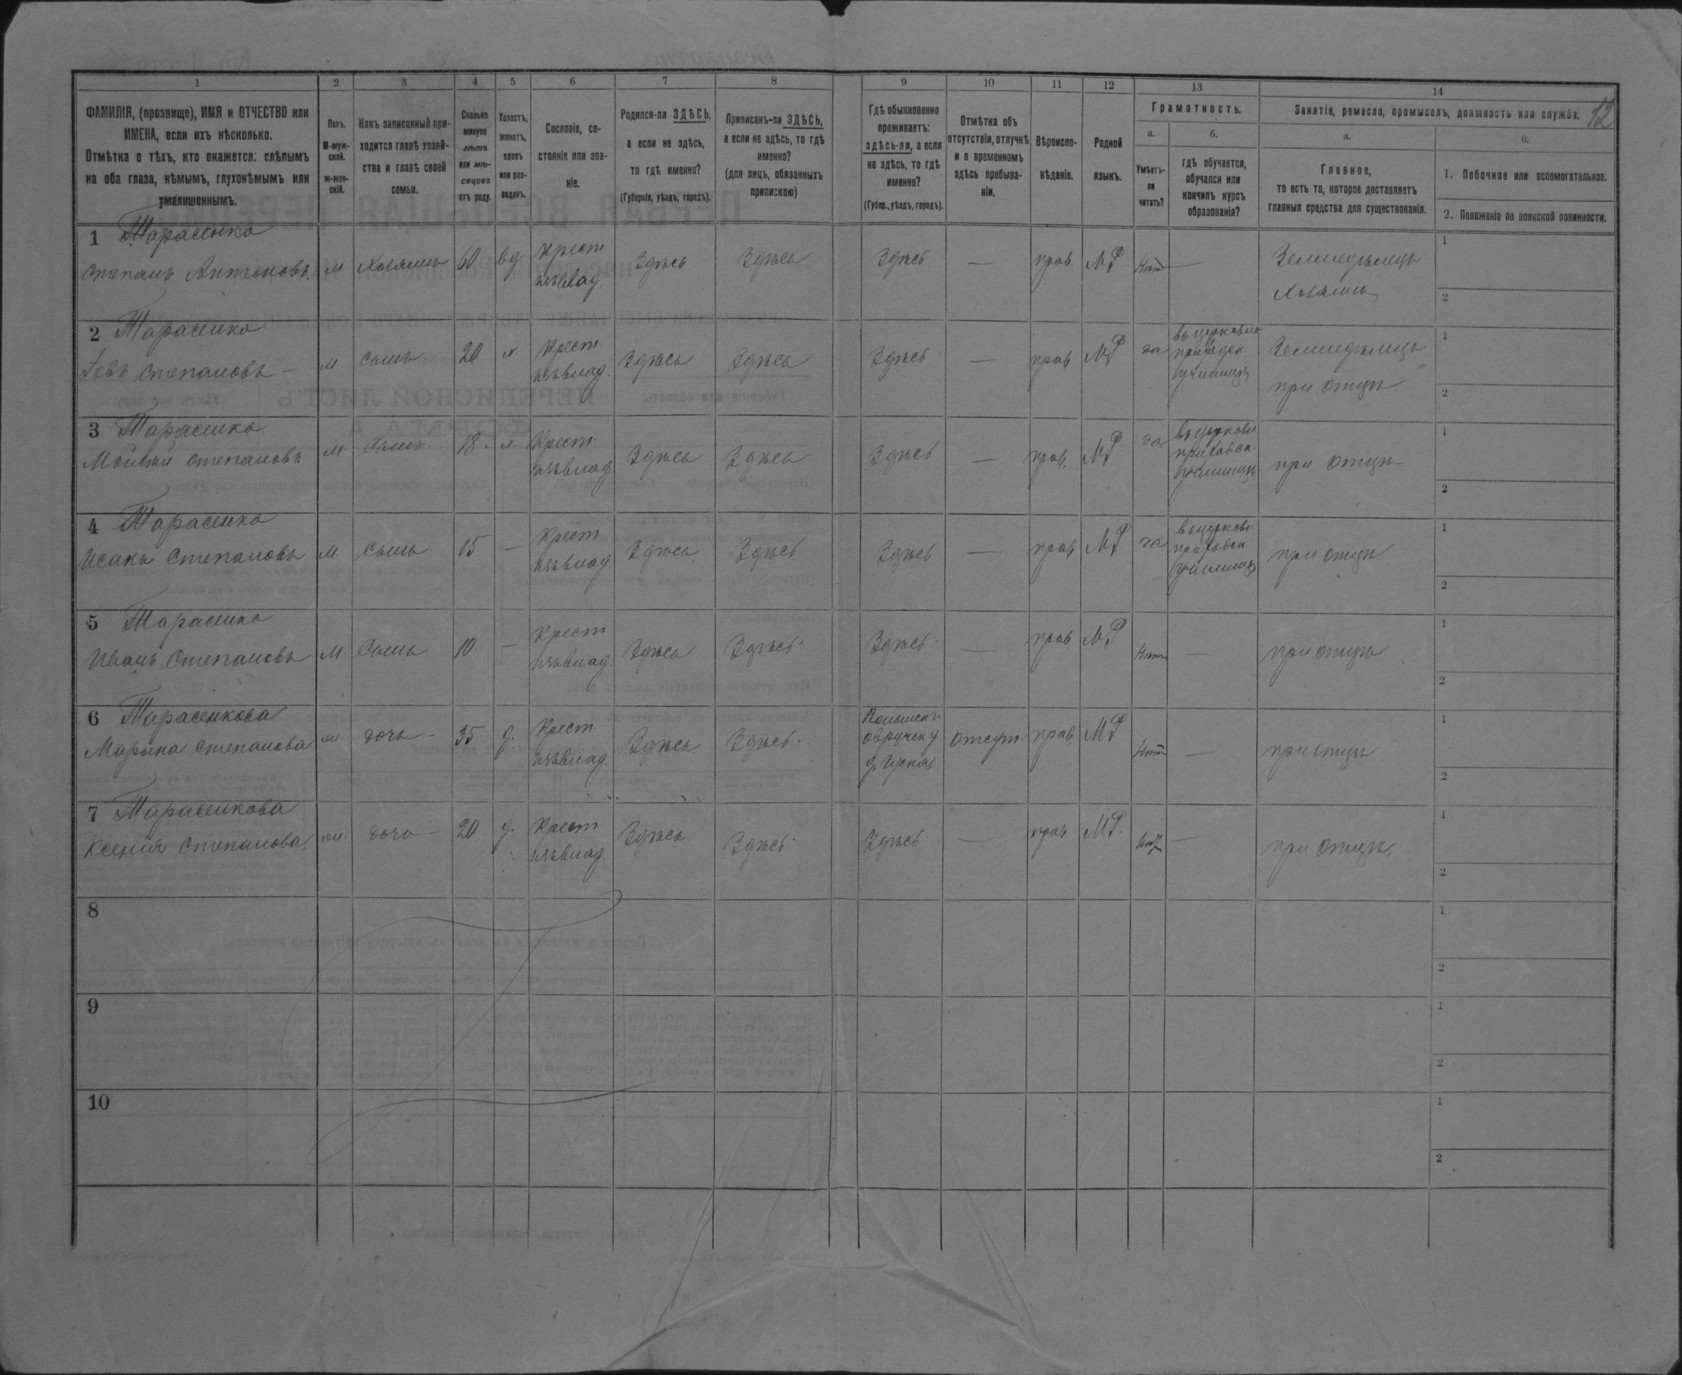 12
1 2 3 4 5 6 7 8 9 10 11 12 13 14
ФАМИЛІЯ, (прозвище), ИМЯ и ОТЧЕСТВО или
ИМЕНА, если ихъ нѣсколько.
Отмѣтка о тѣхъ, кто окажется: слѣпымъ
на оба глаза, нѣмымъ, глухонѣмымъ или
умалишеннымъ.
Полъ.
М-муж-
ской.
ж-жен-
скій.
Какъ записанный при-
ходится главѣ хозяй-
ства и главѣ своей
семьи.
Сколько
минуло
лѣтъ
или мѣ-
сяцевъ
отъ роду.
Холостъ,
женатъ,
вдовъ
или раз-
веденъ.
Сословіе, со-
стояніе или зва-
ніе.
Родился-ли ЗДѢСЬ,
а если не здѣсь,
то гдѣ именно?
(Губернія, уѣздъ, городъ).
Приписанъ-ли ЗДѢСЬ,
а если не здѣсь, то гдѣ
именно?
(для лицъ, обязанныхъ
припискою)
Гдѣ обыкновенно
проживаетъ:
здѣсь-ли, а если
не здѣсь, то гдѣ
именно?
(Губер., уѣздъ, городъ).
Отмѣтка объ
отсутствіи, отлучкѣ
и о временномъ
здѣсь пребыва-
ніи.
Вѣроиспо-
вѣданіе.
Родной
языкъ.
Грамотность.
а.
Умѣетъ-
ли
читать?
б.
гдѣ обучается,
обучался или
кончилъ курсъ
образованія?
Занятіе, ремесло, промыселъ, должность или служба.
а.
Главное,
то есть то, которое доставляетъ
главныя средства для существованія.
б.
1. Побочное или вспомогательное.
2. Положеніе по воинской повинности.
1 Тарасенко
Степанъ Антоновъ м Хозяинъ 60 вд Крест Здѣсь Здѣсь Здѣсь — прав МР Нѣтъ — Земледѣлецъ
Хозяинъ
1
2
2 Тарасенко
Степановъ — м сынъ 20 х Крест Здѣсь Здѣсь Здѣсь — прав МР да Земледѣлецъ
при отцѣ
1
2
3 Тарасенко
Мойсей Степановъ м Сынъ 18 х. Крест Здѣсь Здѣсь Здѣсь — прав. МР да при отцѣ
1
2
4 Тарасенко
Исакъ Степановъ м Сынъ 15 — Крест Здѣсь Здѣсь Здѣсь — прав МР да при отцѣ
1
2
5 Тарасенко
Иванъ Степановъ м Сынъ 10 — Крест Здѣсь Здѣсь Здѣсь — прав МР Нѣтъ — при отцѣ
1
2
6 Тарасенкова
Марина Степанова ж дочь — 35 д. Крест Здѣсь Здѣсь отсут. прав МР Нѣтъ — при отцѣ
1
2
7 Тарасенкова
Ксенія Степанова ж дочь — 20 д. Крест Здѣсь Здѣсь Здѣсь — прав. МР. Нѣтъ — при отцѣ
1
2
8
1
2
9
1
2
10
1
2